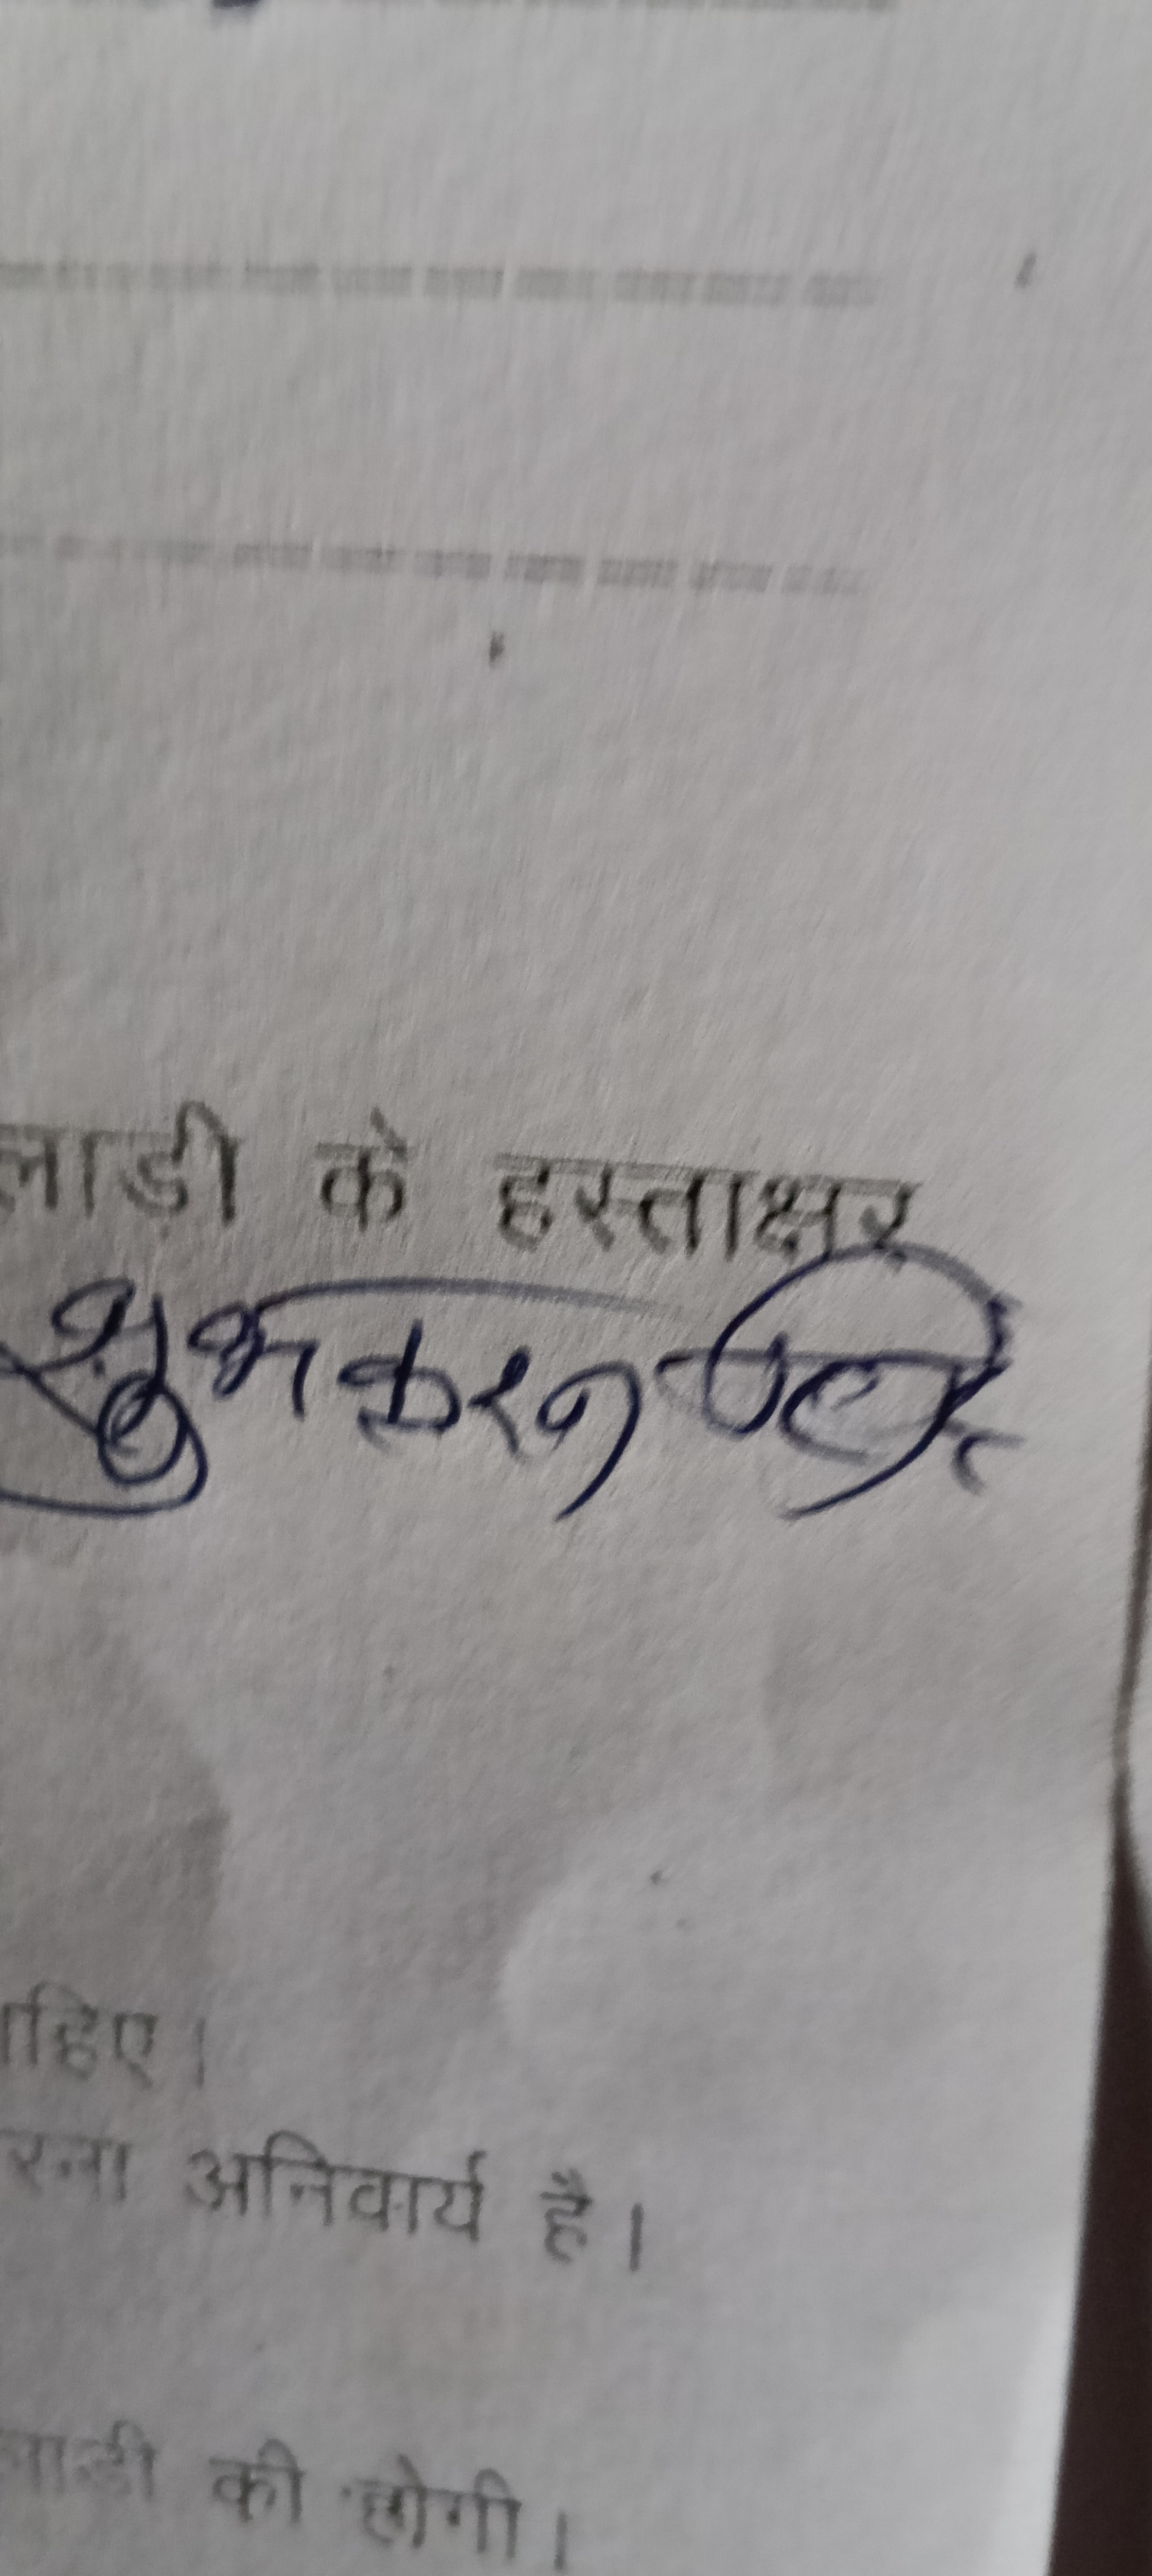 लाड़ी के हस्ताक्षर
शुभकरन
ाहिए।
रना अनिवार्य है।
लाडी की होगी।